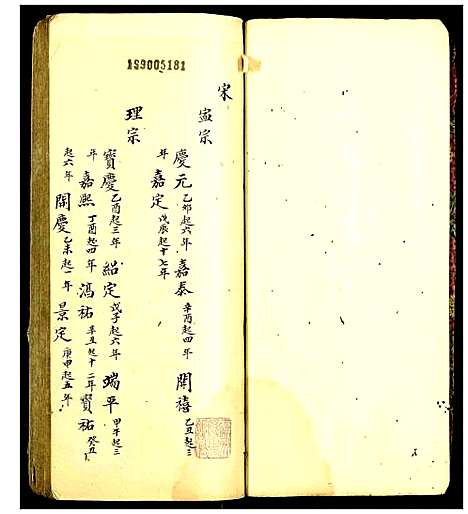 189005181
宋
寍宗
慶元乙卯起六年嘉泰辛酉起四年開禧乙丑起三
年嘉定戊辰起十七年
理宗
寶慶乙酉起三年紹定戊子起六年端平甲午起三
年嘉熙丁酉起四年淳祐辛丑起十二年寳祐癸丑
起六年開慶乙未起一年景定庚申起五年